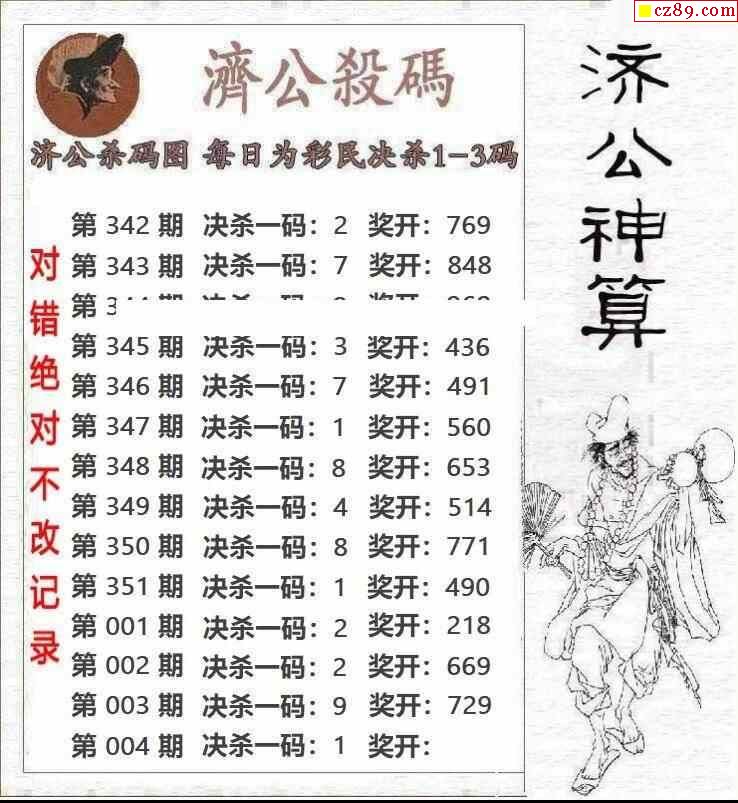 cz89.com
濟公殺碼
济公杀码图 每日为彩民决杀1-3码
第 342 期 决杀一码：2 奖开：769
第 343 期 决杀一码：7 奖开：848
第
第 345 期 决杀一码：3 奖开：436
第 346 期 决杀一码：7 奖开：491
第 347 期 决杀一码：1 奖开：560
第 348 期 决杀一码：8 奖开：653
第 349 期 决杀一码：4 奖开：514
第 350 期 决杀一码：8 奖开：771
第 351 期 决杀一码：1 奖开：490
第 001 期 决杀一码：2 奖开：218
第 002 期 决杀一码：2 奖开：669
第 003 期 决杀一码：9 奖开：729
第 004 期 决杀一码：1 奖开：
对错绝对不改记录
济公神算